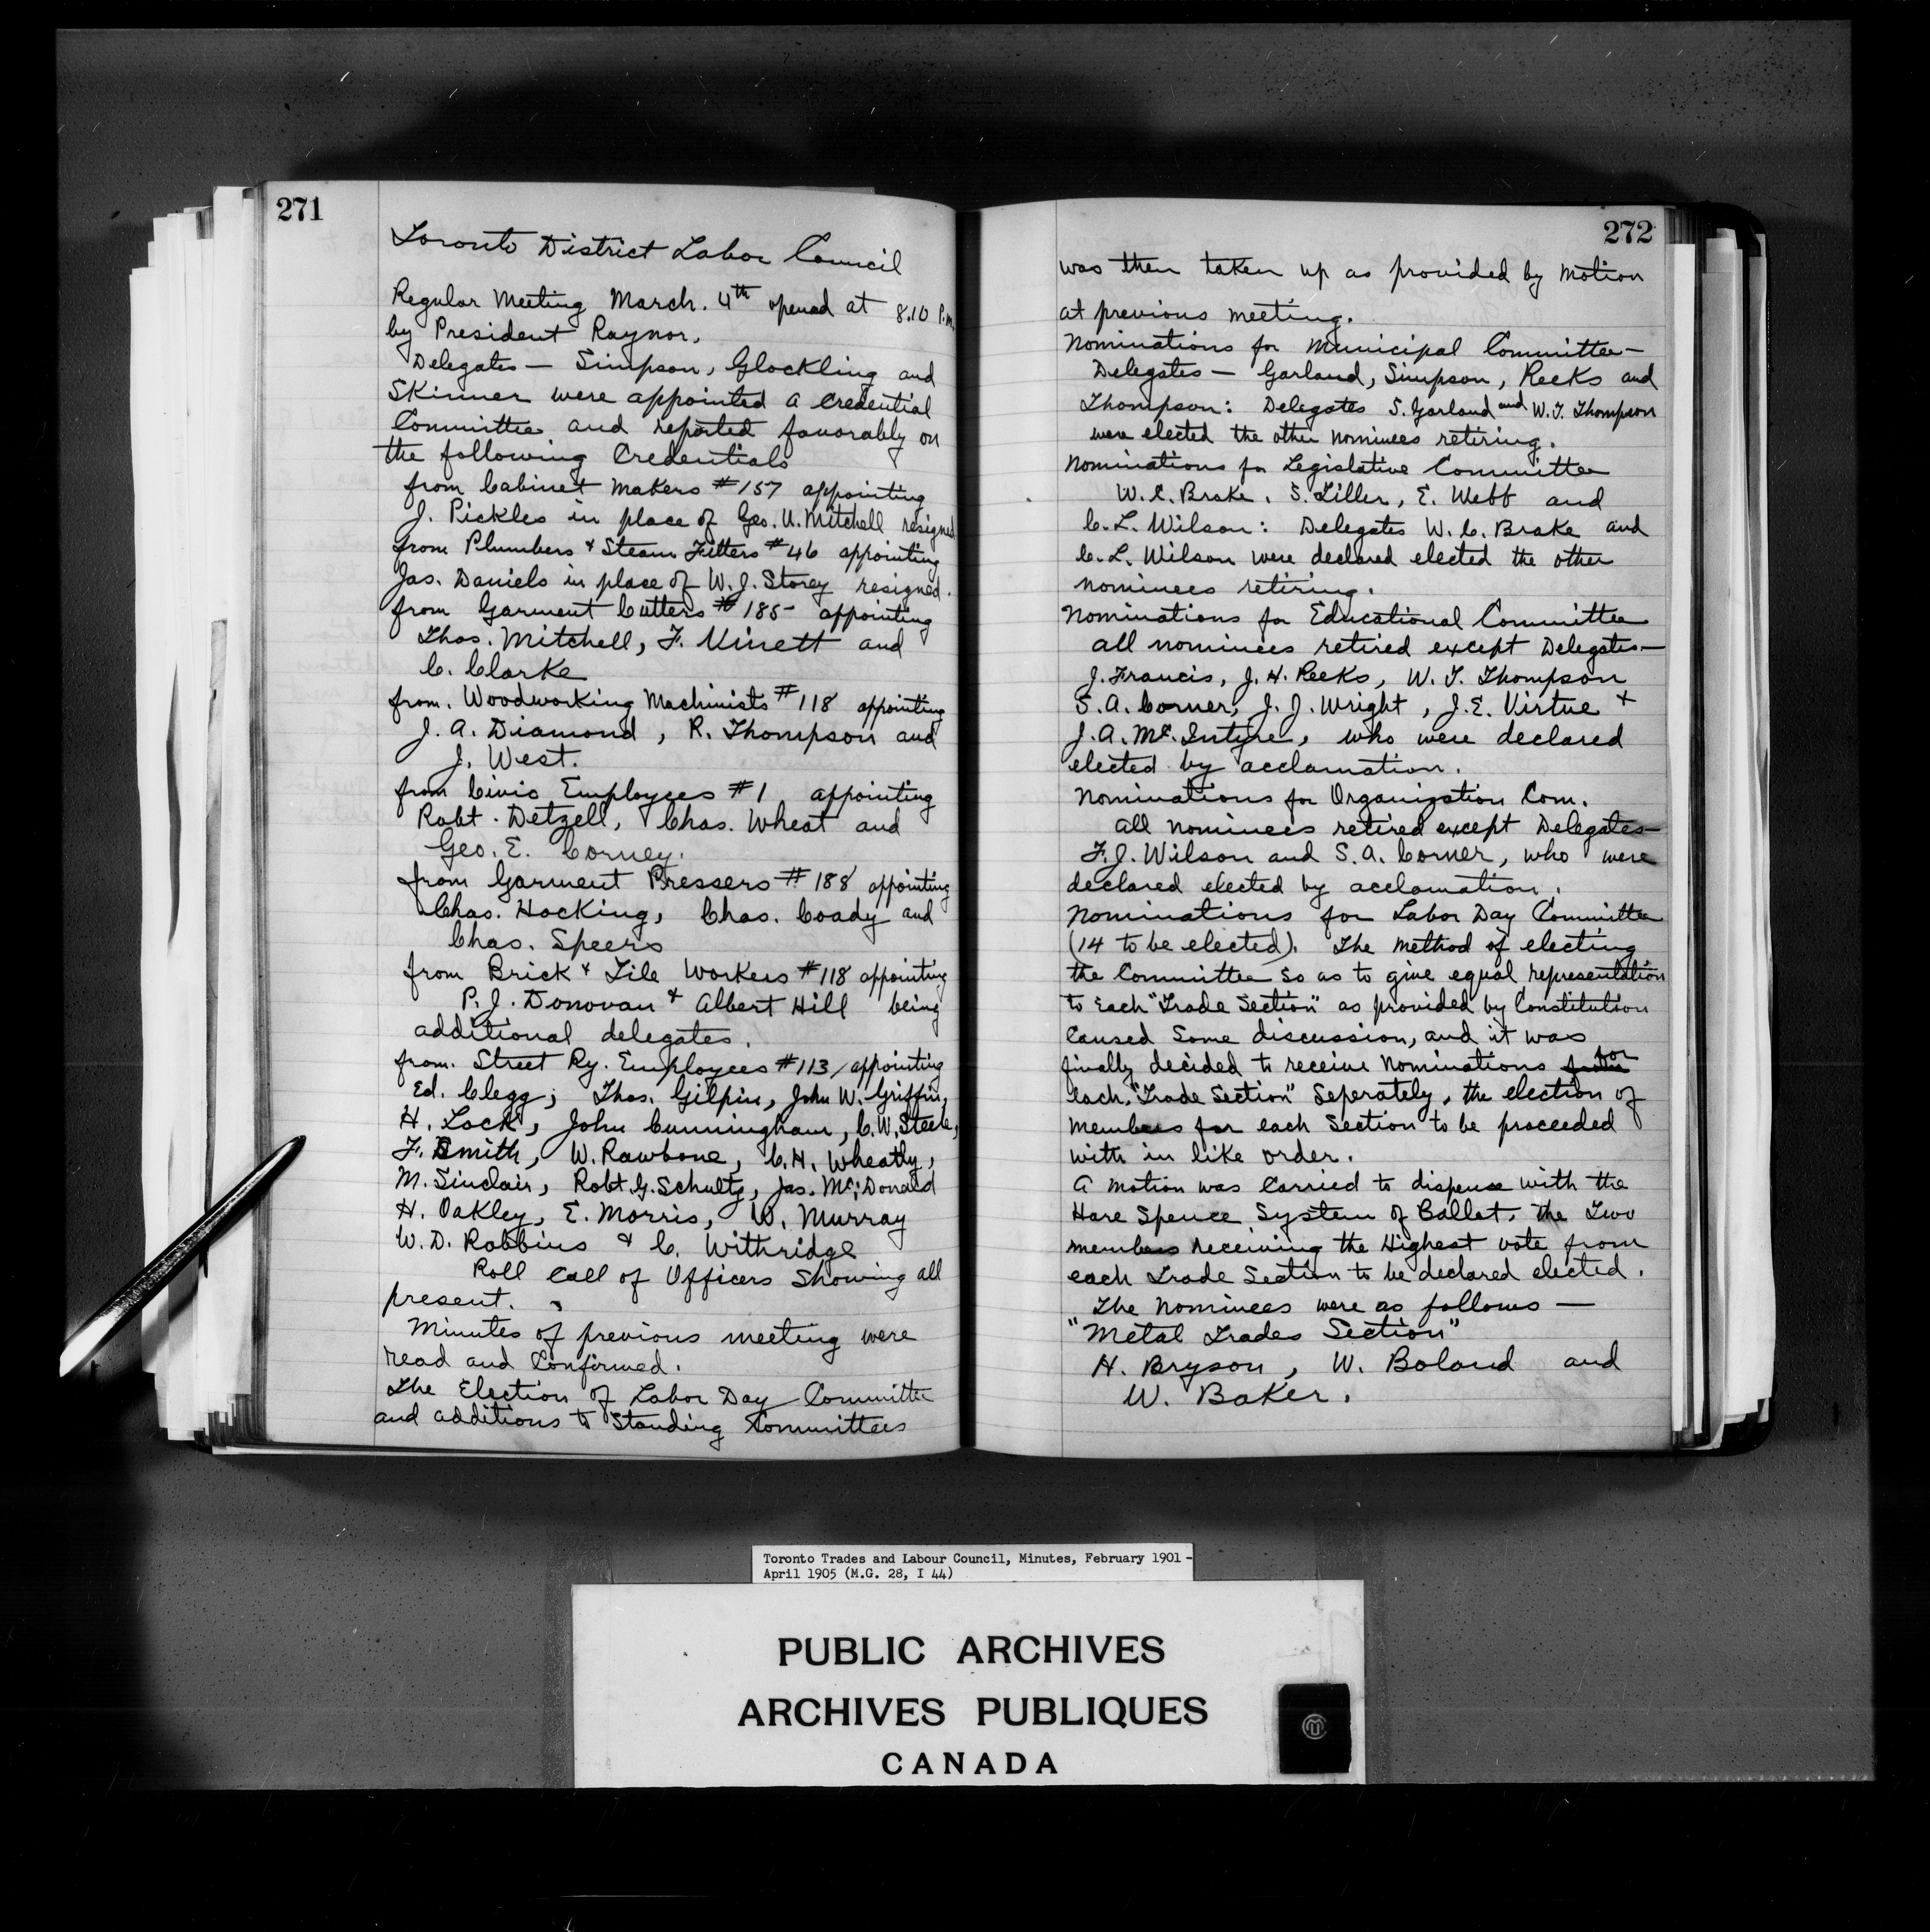 271
Toronto District Labor Council
Regular Meeting March. 4th opened at 8.10 P.m.
by President Raynor.
Delegates — Simpson, Glockling and
Skinner were appointed a Credential
Committee and reported favorably on
the following Credentials
from Cabinet Makers #157 appointing
J. Pickles in place of Geo. U. Mitchell resigned
from Plumbers & Steam Fitters #46 appointing
Jas. Daniels in place of W. J. Storey resigned.
from Garment Cutters #185 appointing
Thos. Mitchell, F. Vinett and
C. Clarke
from. Woodworking Machinists #118 appointing
J. A. Diamond, R. Thompson and
J. West.
from Civic Employees #1 appointing
Robt. Detzell, Chas. Wheat and
Geo. E. Corney.
from Garment Pressers #188 appointing
Chas. Hocking, Chas. Coady and
Chas. Speers
from Brick & Tile Workers #118 appointing
P. J. Donovan & Albert Hill being
additional delegates.
from. Street Ry. Employees #113, appointing
Ed. Clegg; Thos. Gilpin, John W. Griffin,
H. Lock, John Cunningham, C. W. Steele,
F. Smith, W. Rawbone, C. H. Wheatly,
M. Sinclair, Robt. G. Schultz, Jas. McDonald
H. Oakley, E. Morris, W. Murray
W. D. Robbins & C. Withridge
Roll Call of Officers Showing all
present.
Minutes of previous meeting were
read and Confirmed.
The Election of Labor Day Committee
and additions to Standing Committees
272
was then taken up as provided by motion
at previous meeting.
Nominations for Municipal Committee—
Delegates — Garland, Simpson, Reeks and
Thompson: Delegates S. Garland and W. T. Thompson
were elected the other nominees retiring.
Nominations for Legislative Committee
W. C. Brake, S. Tiller, E. Webb and
C. L. Wilson: Delegates W. C. Brake and
C. L. Wilson were declared elected the other
nominees retiring.
Nominations for Educational Committee
all nominees retired except Delegates—
J. Francis, J. H. Reeks, W. T. Thompson
S. A. Corner, J. J. Wright, J. E. Virtue &
J. A. Mc.Intyre, who were declared
elected by acclamation.
Nominations for Organization Com.
all nominees retired except Delegates—
F. J. Wilson and S. A. Corner, who were
declared elected by acclamation.
Nominations for Labor Day Committee
(14 to be elected). The method of electing
the Committee so as to give equal representation
to Each "Trade Section" as provided by Constitution
Caused Some discussion, and it was
finally decided to receive Nominations for
each, "Trade Section" Seperately, the election of
members for each Section to be proceeded
with in like order.
A motion was Carried to dispense with the
Hare Spence System of Ballot, the Two
members receiving the Highest vote from
each Trade Section to be declared elected.
The nominees were as follows —
"Metal Trades Section"
H. Bryson, W. Boland and
W. Baker.
Toronto Trades and Labour Council, Minutes, February 1901 -
April 1905 (M.G. 28, I 44)
PUBLIC ARCHIVES
ARCHIVES PUBLIQUES
CANADA